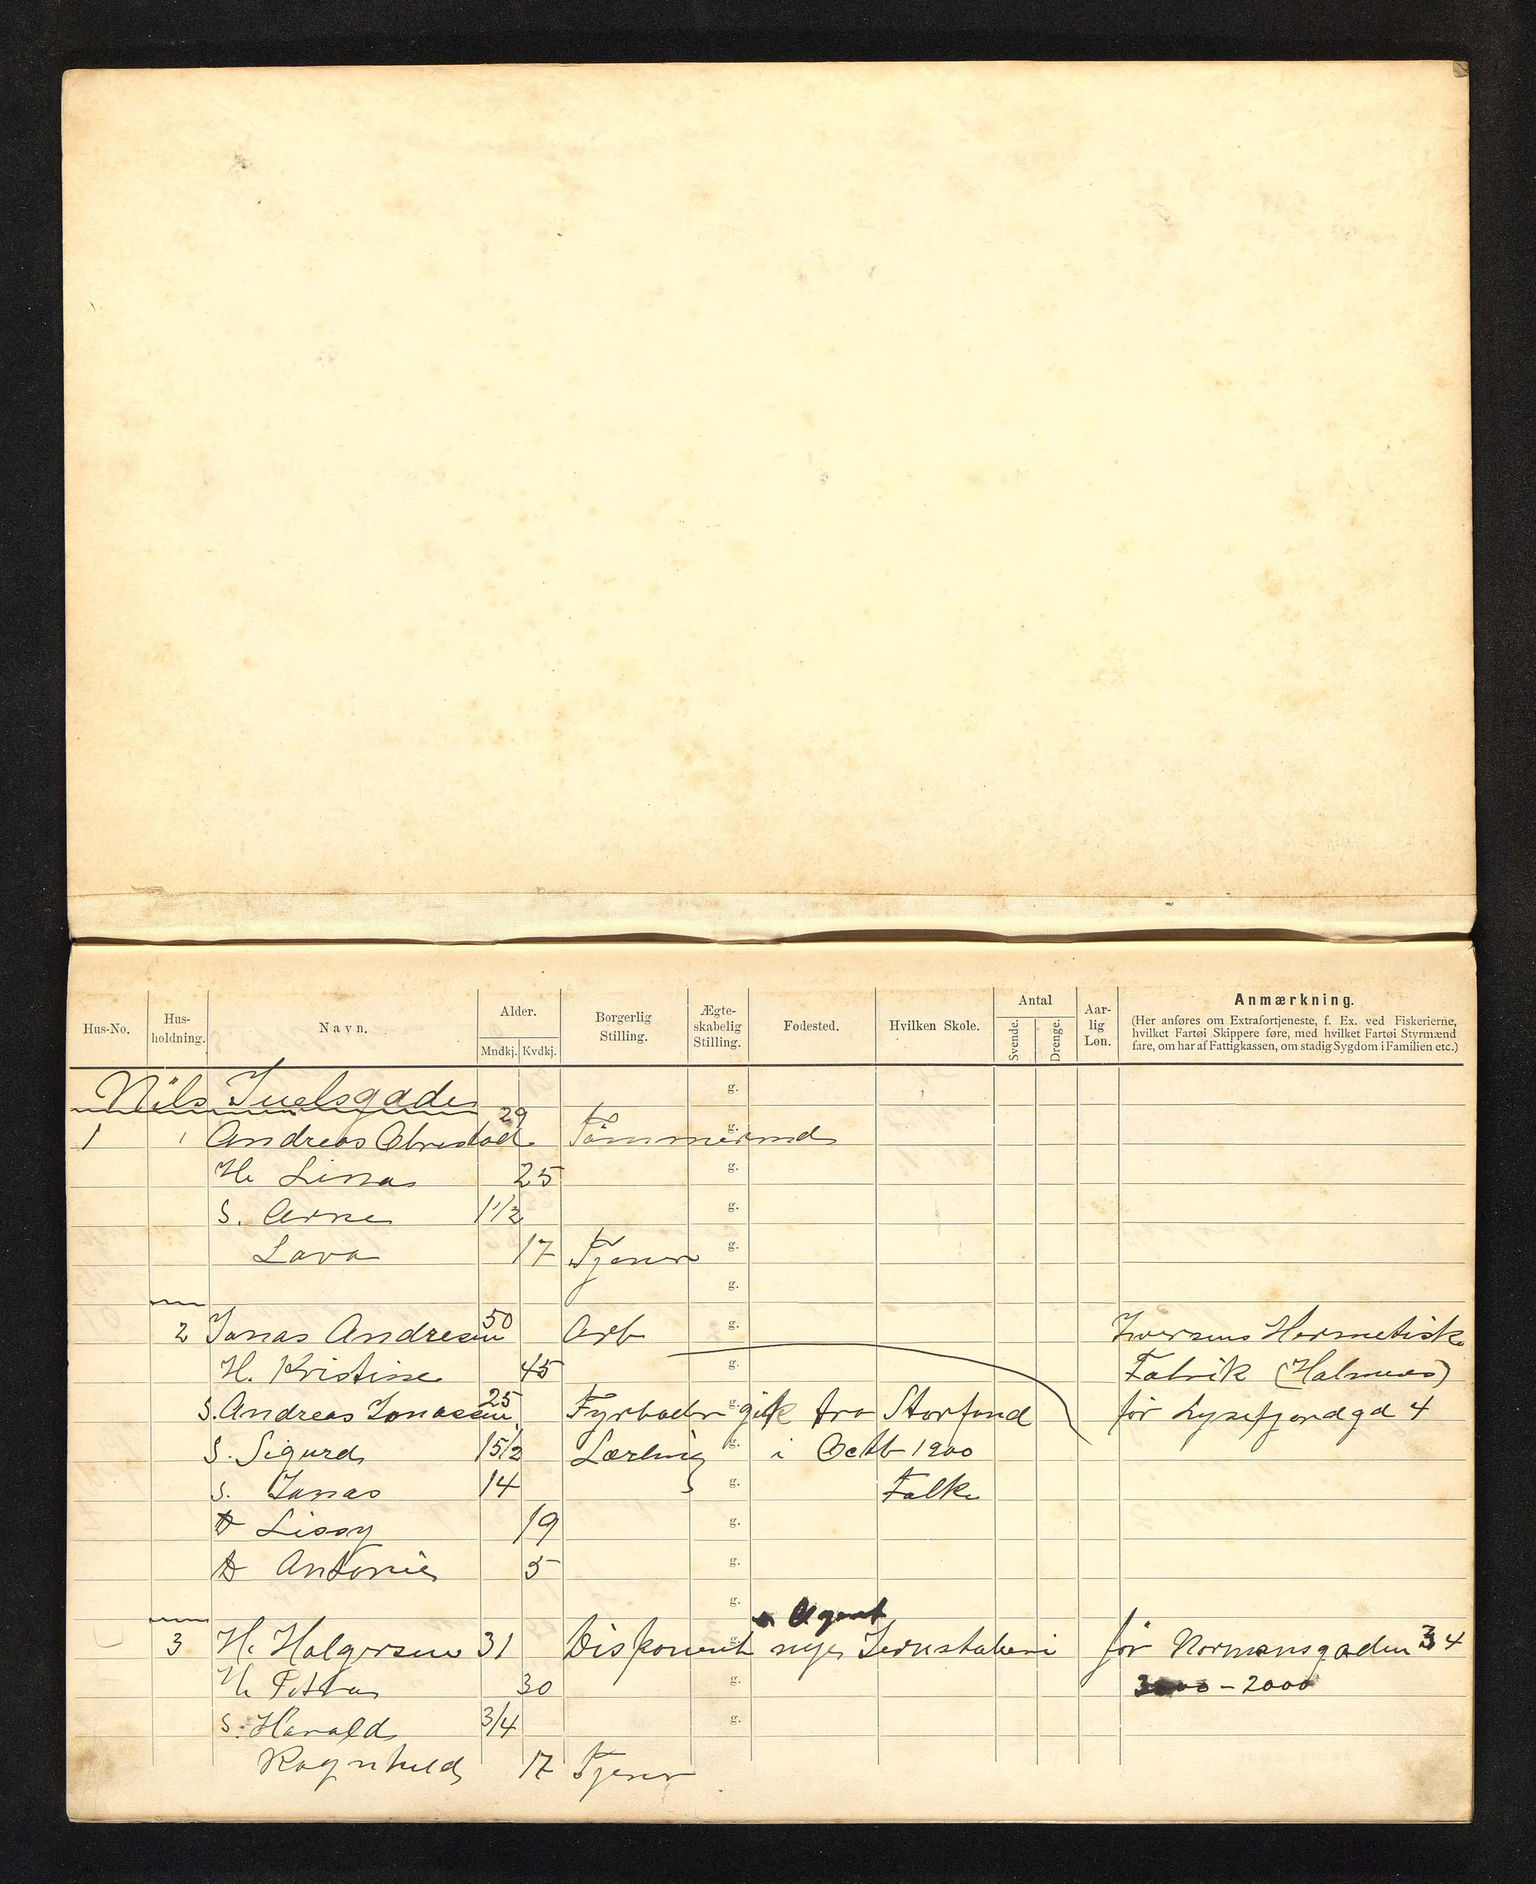 Hus-No. Hus-holdning. Navn. Alder. Mndkj. Kvdkj. Borgerlig Stilling. Ægte-skabelig Stilling. Fødested. Hvilken Skole. Antal Svende. Drenge. Aar-lig Løn. Anmærkning.
(Her anføres om Extrafortjeneste, f. Ex. ved Fiskerierne,
hvilket Fartøi Skippere føre, med hvilket Fartøi Styrmænd
fare, om har af Fattigkassen, om stadig Sygdom i Familien etc.)
Nils Juelsgade g.
1 1 Andreas Obrestad 29 Tømmermd g.
H. Lina 25 g.
S. Arne 1 1/2 g.
Lava 17 Tjener g.
g.
2 Jonas Andresen 50 Arb g. Iversens Hermetisk
H. Kristine 45 g. Fabrik (Holmen)
S. Andreas Jonassen 25 Fyrbøder g. gik fra Storfond før Lysefjordgd 4
S. Sigurd 15 1/2 Lærling g. i Octb 1900
S. Jonas 14 g. Folke
D Lissy 19 g.
D Antonie 5 g.
g. Agent
3 H. Holgersen 31 Disponent g. nye Jernstøberi før Normansgaden 34
H. Petra 30 g. 3000 - 2000
S. Harald 3/4 g.
Ragnhild 17 Tjener